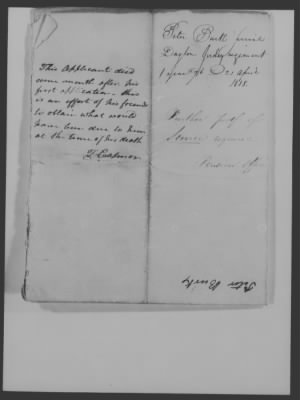 This Applicant died
some month after his
first application - this
is an effort of his friends
to obtain what would
have been due to him
at the time of his death
Peter Burk
Dayton Jersey regiment
1 year 76 21 April
1818.
Further proof of
Service required
Pension Office
Peter Burk